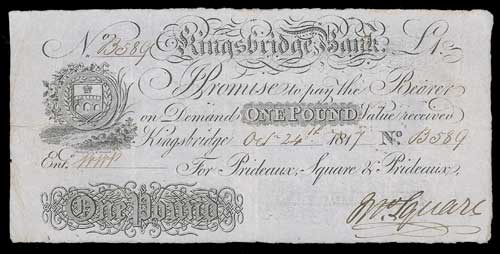 No. B589 Kingsbridge Bank. £1
I Promise to pay the Bearer
on Demand ONE POUND Value received
Kingsbridge Oct 24th 1817 No. B589
Ent.
For Prideaux, Square & Prideaux,
One Pound
Square